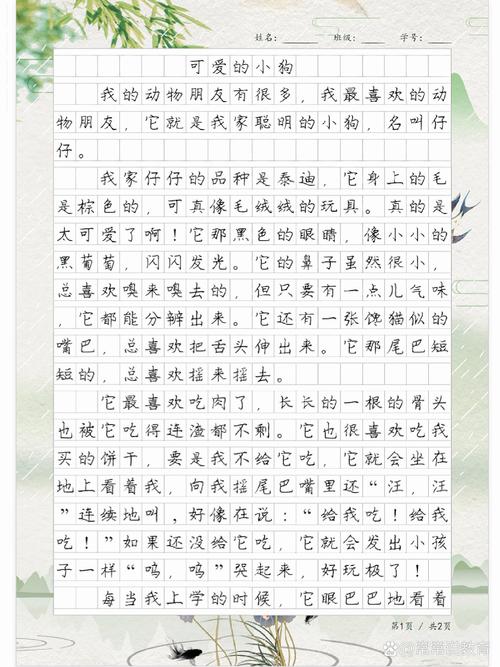 姓名: 班级: 学号:
可爱的小狗
我的动物朋友有很多，我最喜欢的动
物朋友，它就是我家聪明的小狗，名叫仔
仔。
我家仔仔的品种是泰迪，它身上的毛
是棕色的，可真像毛绒绒的玩具。真的是
太可爱了啊！它那黑色的眼睛，像小小的
黑葡萄，闪闪发光。它的鼻子虽然很小，
总喜欢嗅来嗅去的，但只要有一点儿气味
，它都能分辨出来。它还有一张馋猫似的
嘴巴，总喜欢把舌头伸出来。它那尾巴短
短的，总喜欢摇来摇去。
它最喜欢吃肉了，长长的一根的骨头
也被它吃得连渣都不剩。它也很喜欢吃我
买的饼干，要是我不给它吃，它就会坐在
地上看着我，向我摇尾巴嘴里还“汪，汪
”连续地叫，好像在说：“给我吃！给我
吃！”如果还没给它吃，它就会发出小孩
子一样“呜，呜”哭起来，好玩极了！
每当我上学的时候，它眼巴巴地看着
第1页 / 共2页